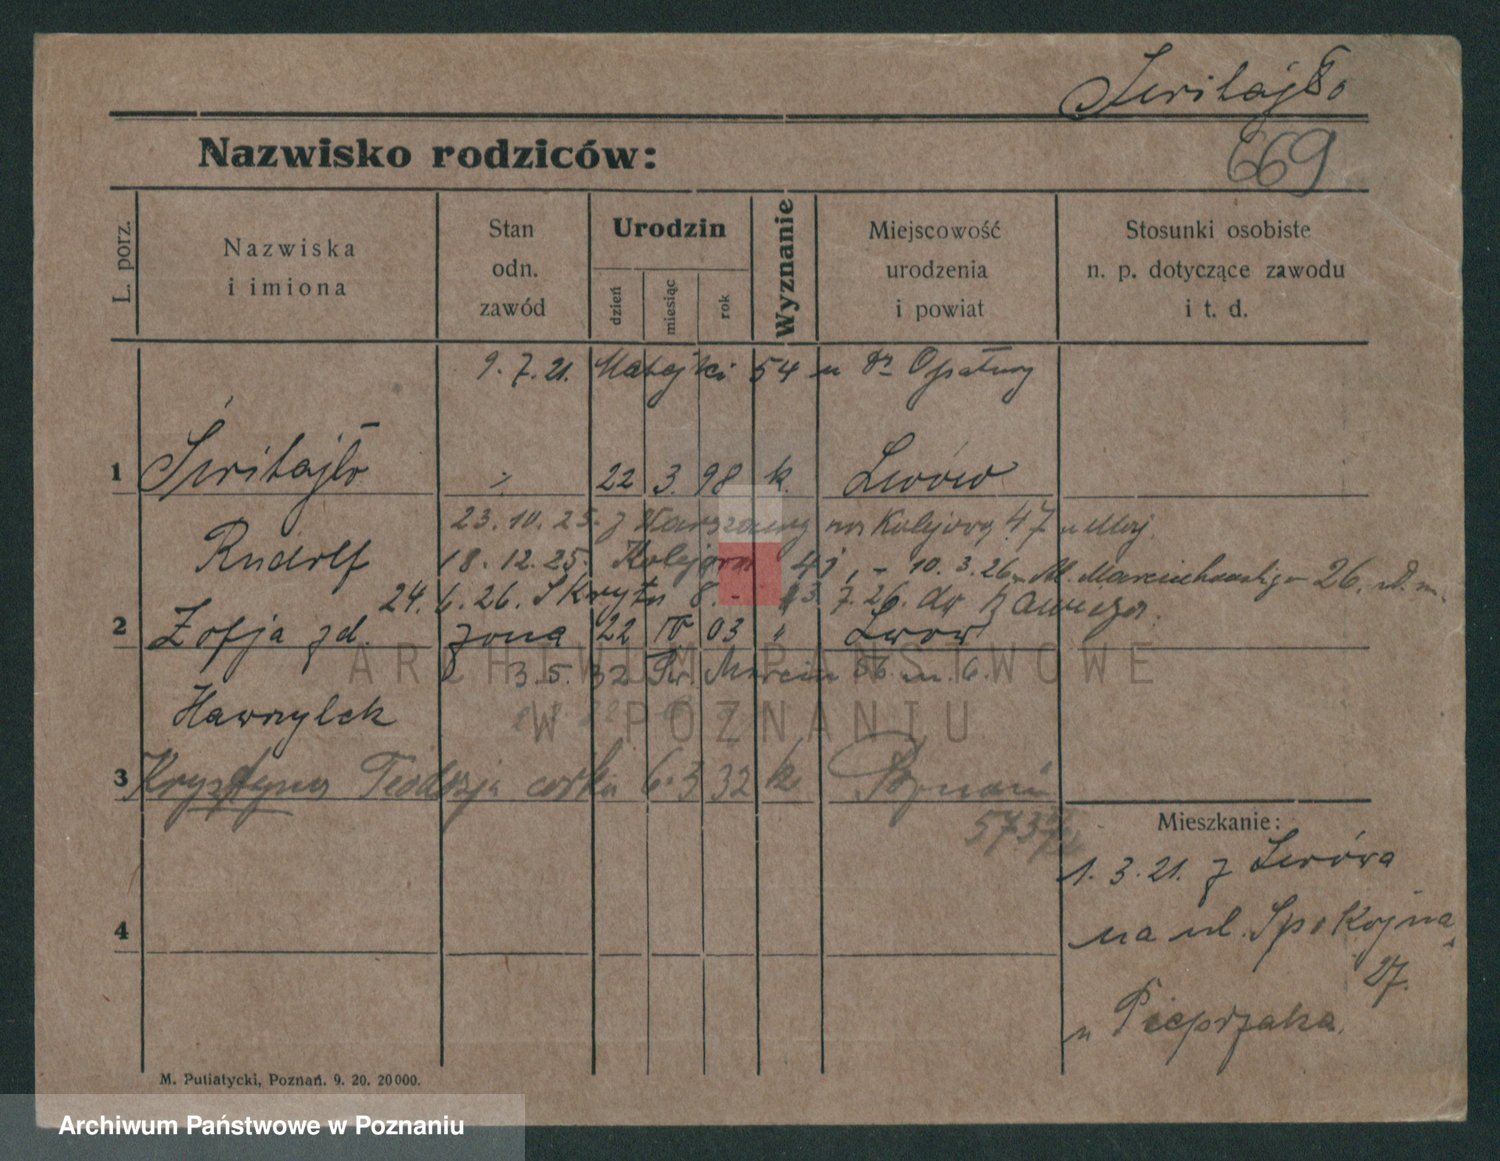 Świtajło
669
Nazwisko rodziców:
L. porz.
Nazwiska
i imiona
Stan
odn.
zawód
Urodzin
dzień
miesiąc
rok
Wyznanie
Miejscowość
urodzenia
i powiat
Stosunki osobiste
n. p. dotyczące zawodu
i t. d.
9. 7. 21. Matejki 54 u Dr Opatrny
1 Świtajło 22 3. 98 k. Lwów
23. 10. 25. z Warszawy na Kolejową 47 u
Rudolf 18. 12. 25. Kolejowa 41, - 10. 3. 26 26.
24. 6. 26. Skryta 8. - 7. 26. do Rawicza.
2 Zofja zd. żona 22 IV 03 " Lwów
3. 5. 32 Św. Marcin 56 m. 6.
Hawrylek
3 Krystyna Teodozja córka 6. 3 32 k Poznań
Mieszkanie:
1. 3. 21. z Lwowa
na ul. Spokojna
27.
u Pieprzaka.
4
M. Putiatycki, Poznań. 9. 20. 20000.
ARCHIWUM PAŃSTWOWE
W POZNANIU
Archiwum Państwowe w Poznaniu